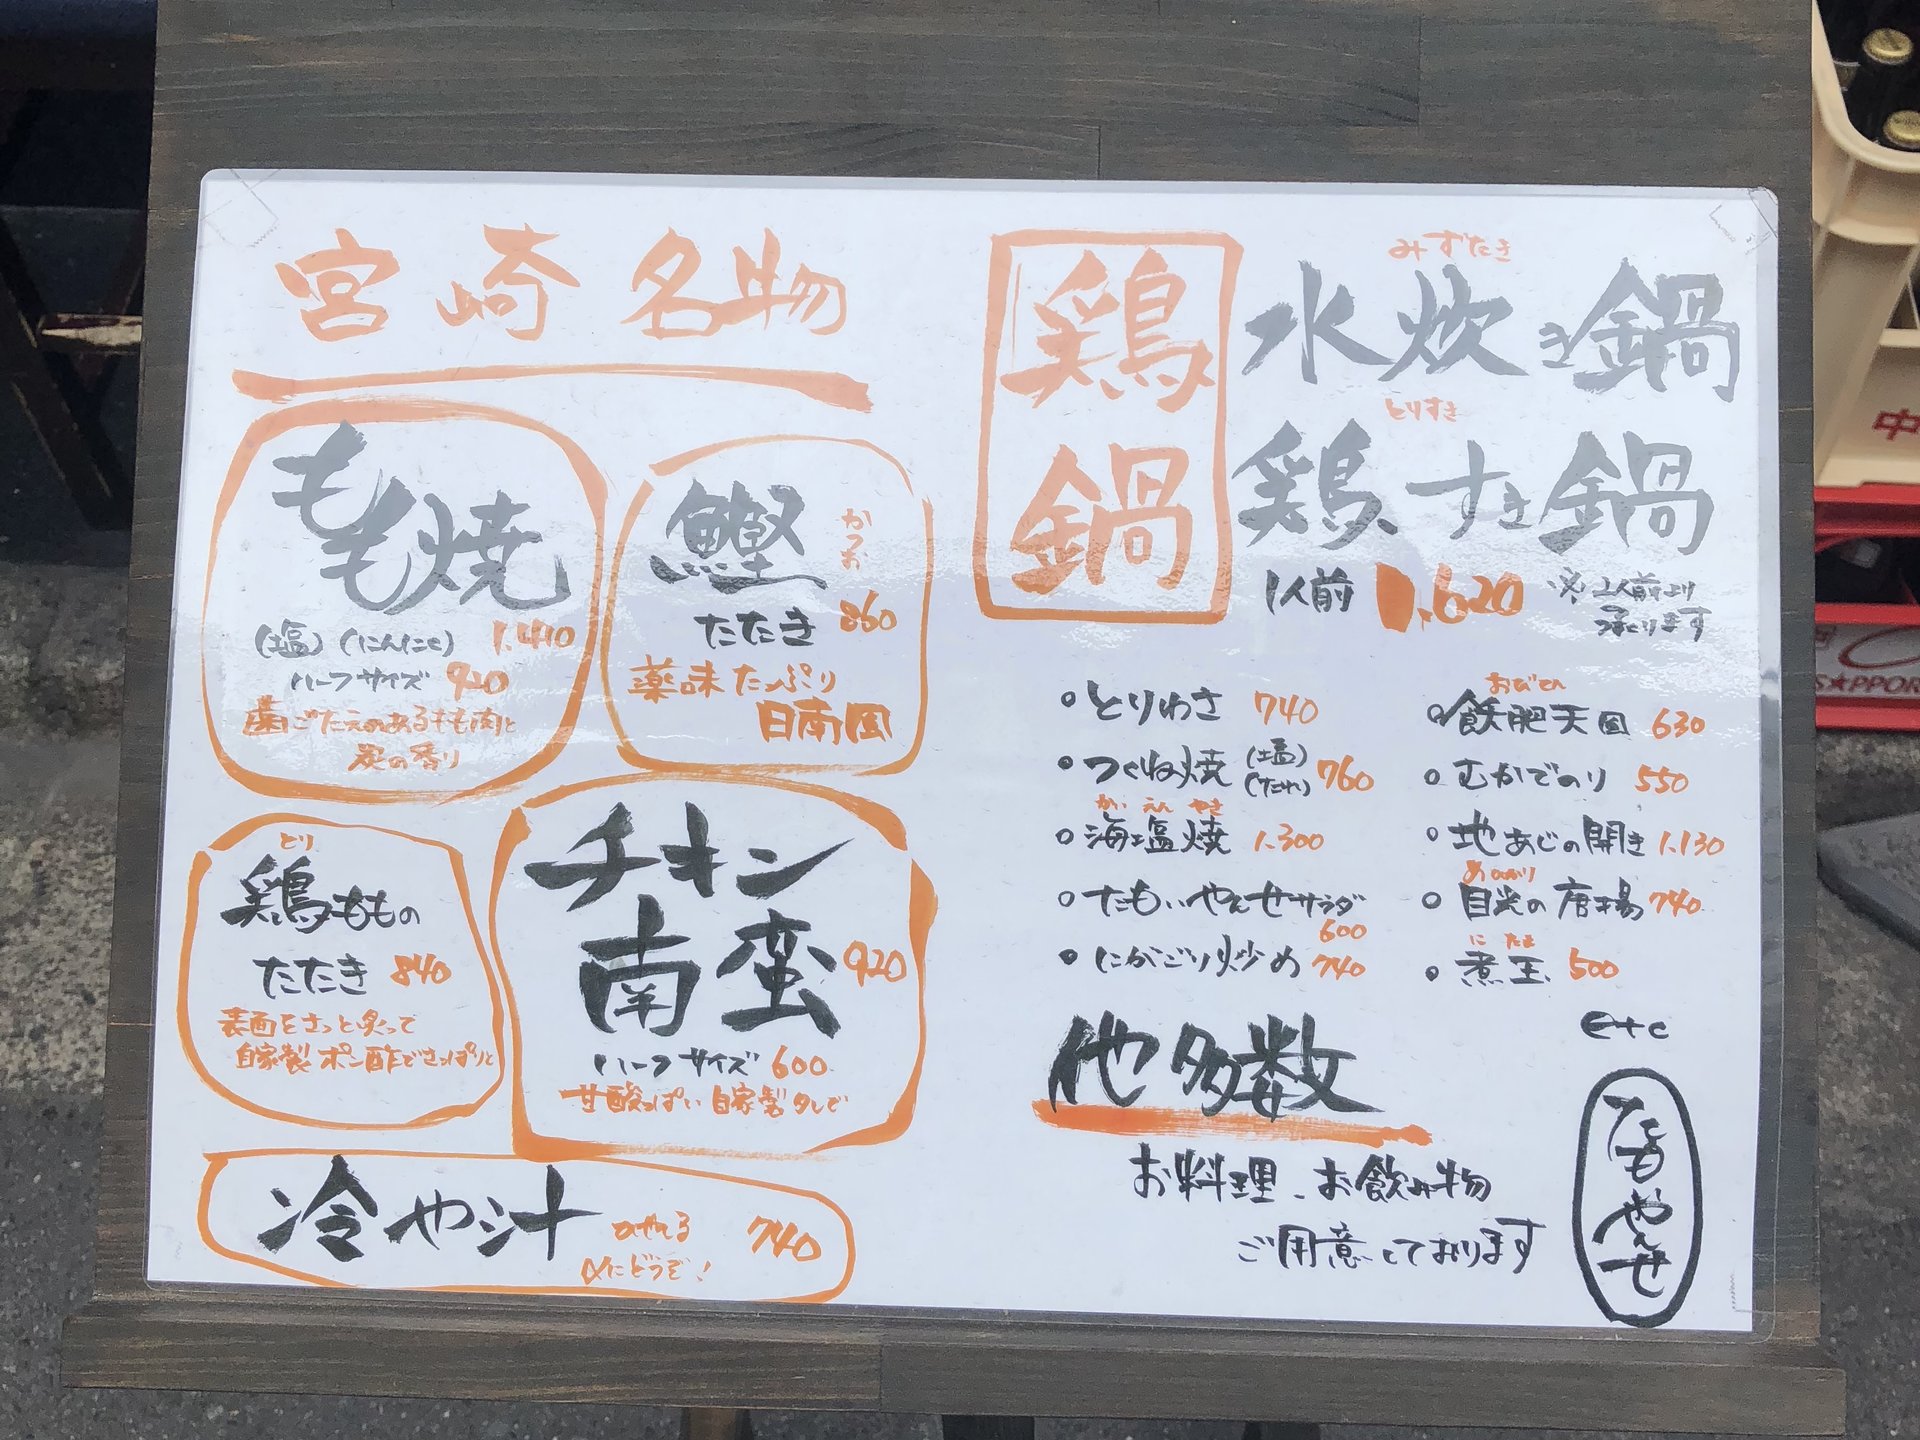 宮崎名物
もも焼
(塩)(にんにく) 1.440
ハーフサイズ 920
歯ごたえのあるもも肉と
炭の香り
鰹 かつお
たたき 860
薬味たっぷり
日南風
とり
鶏ももの
たたき 840
表面をさっと炙って
自家製ポン酢でさっぱりと
チキン
南蛮 920
ハーフサイズ 600
甘酸っぱい自家製タレで
冷や汁 740
にどうぞ!
鶏鍋
みずたき
水炊き鍋
とりすき
鶏すき鍋
1人前 1.620 ※2人前より
承ります
とりわさ 740
つくね焼 (塩)(たれ) 760
かい えん やき
海塩焼 1.300
たもいやんせサラダ
600
にがごり炒め 740
おびてん
飫肥天 630
むかでのり 550
地あじの開き 1.130
めひかり
目光の唐揚 740
に たま
煮玉 500
etc
他多数
お料理、お飲み物
ご用意しております
たもいやんせ
中